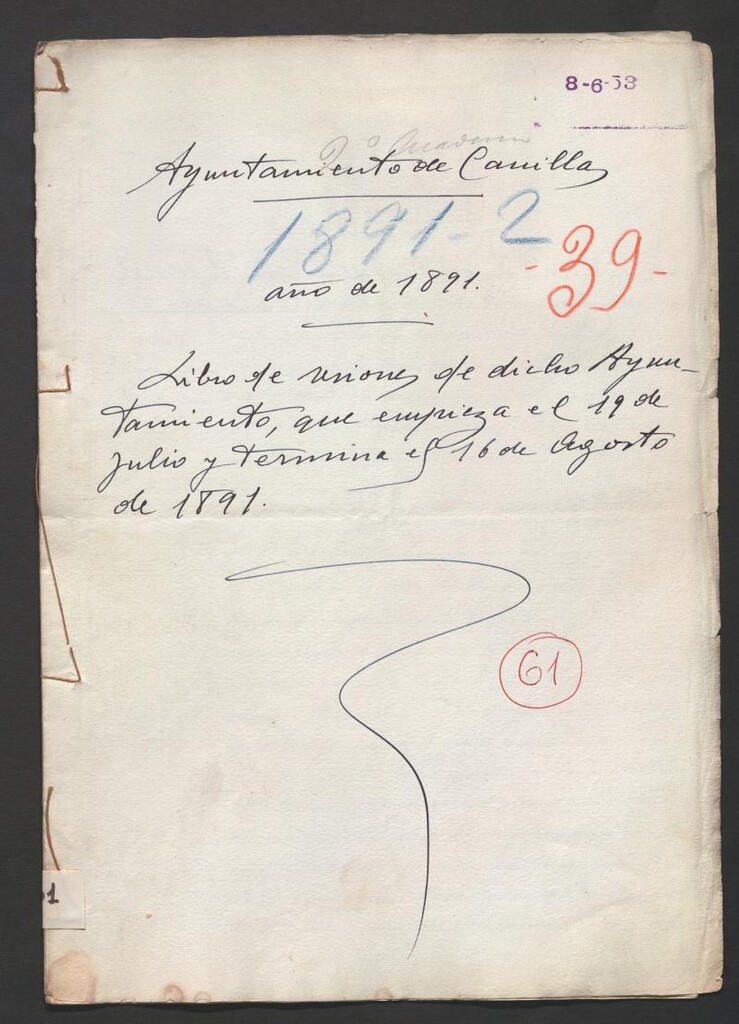 8-6-53
2º Cuaderno
Ayuntamiento de Canillas
1891-2
-39-
año de 1891.
Libro de sesiones de dicho Ayun-
tamiento, que empieza el 19 de
julio y termina el 16 de Agosto
de 1891.
61
1